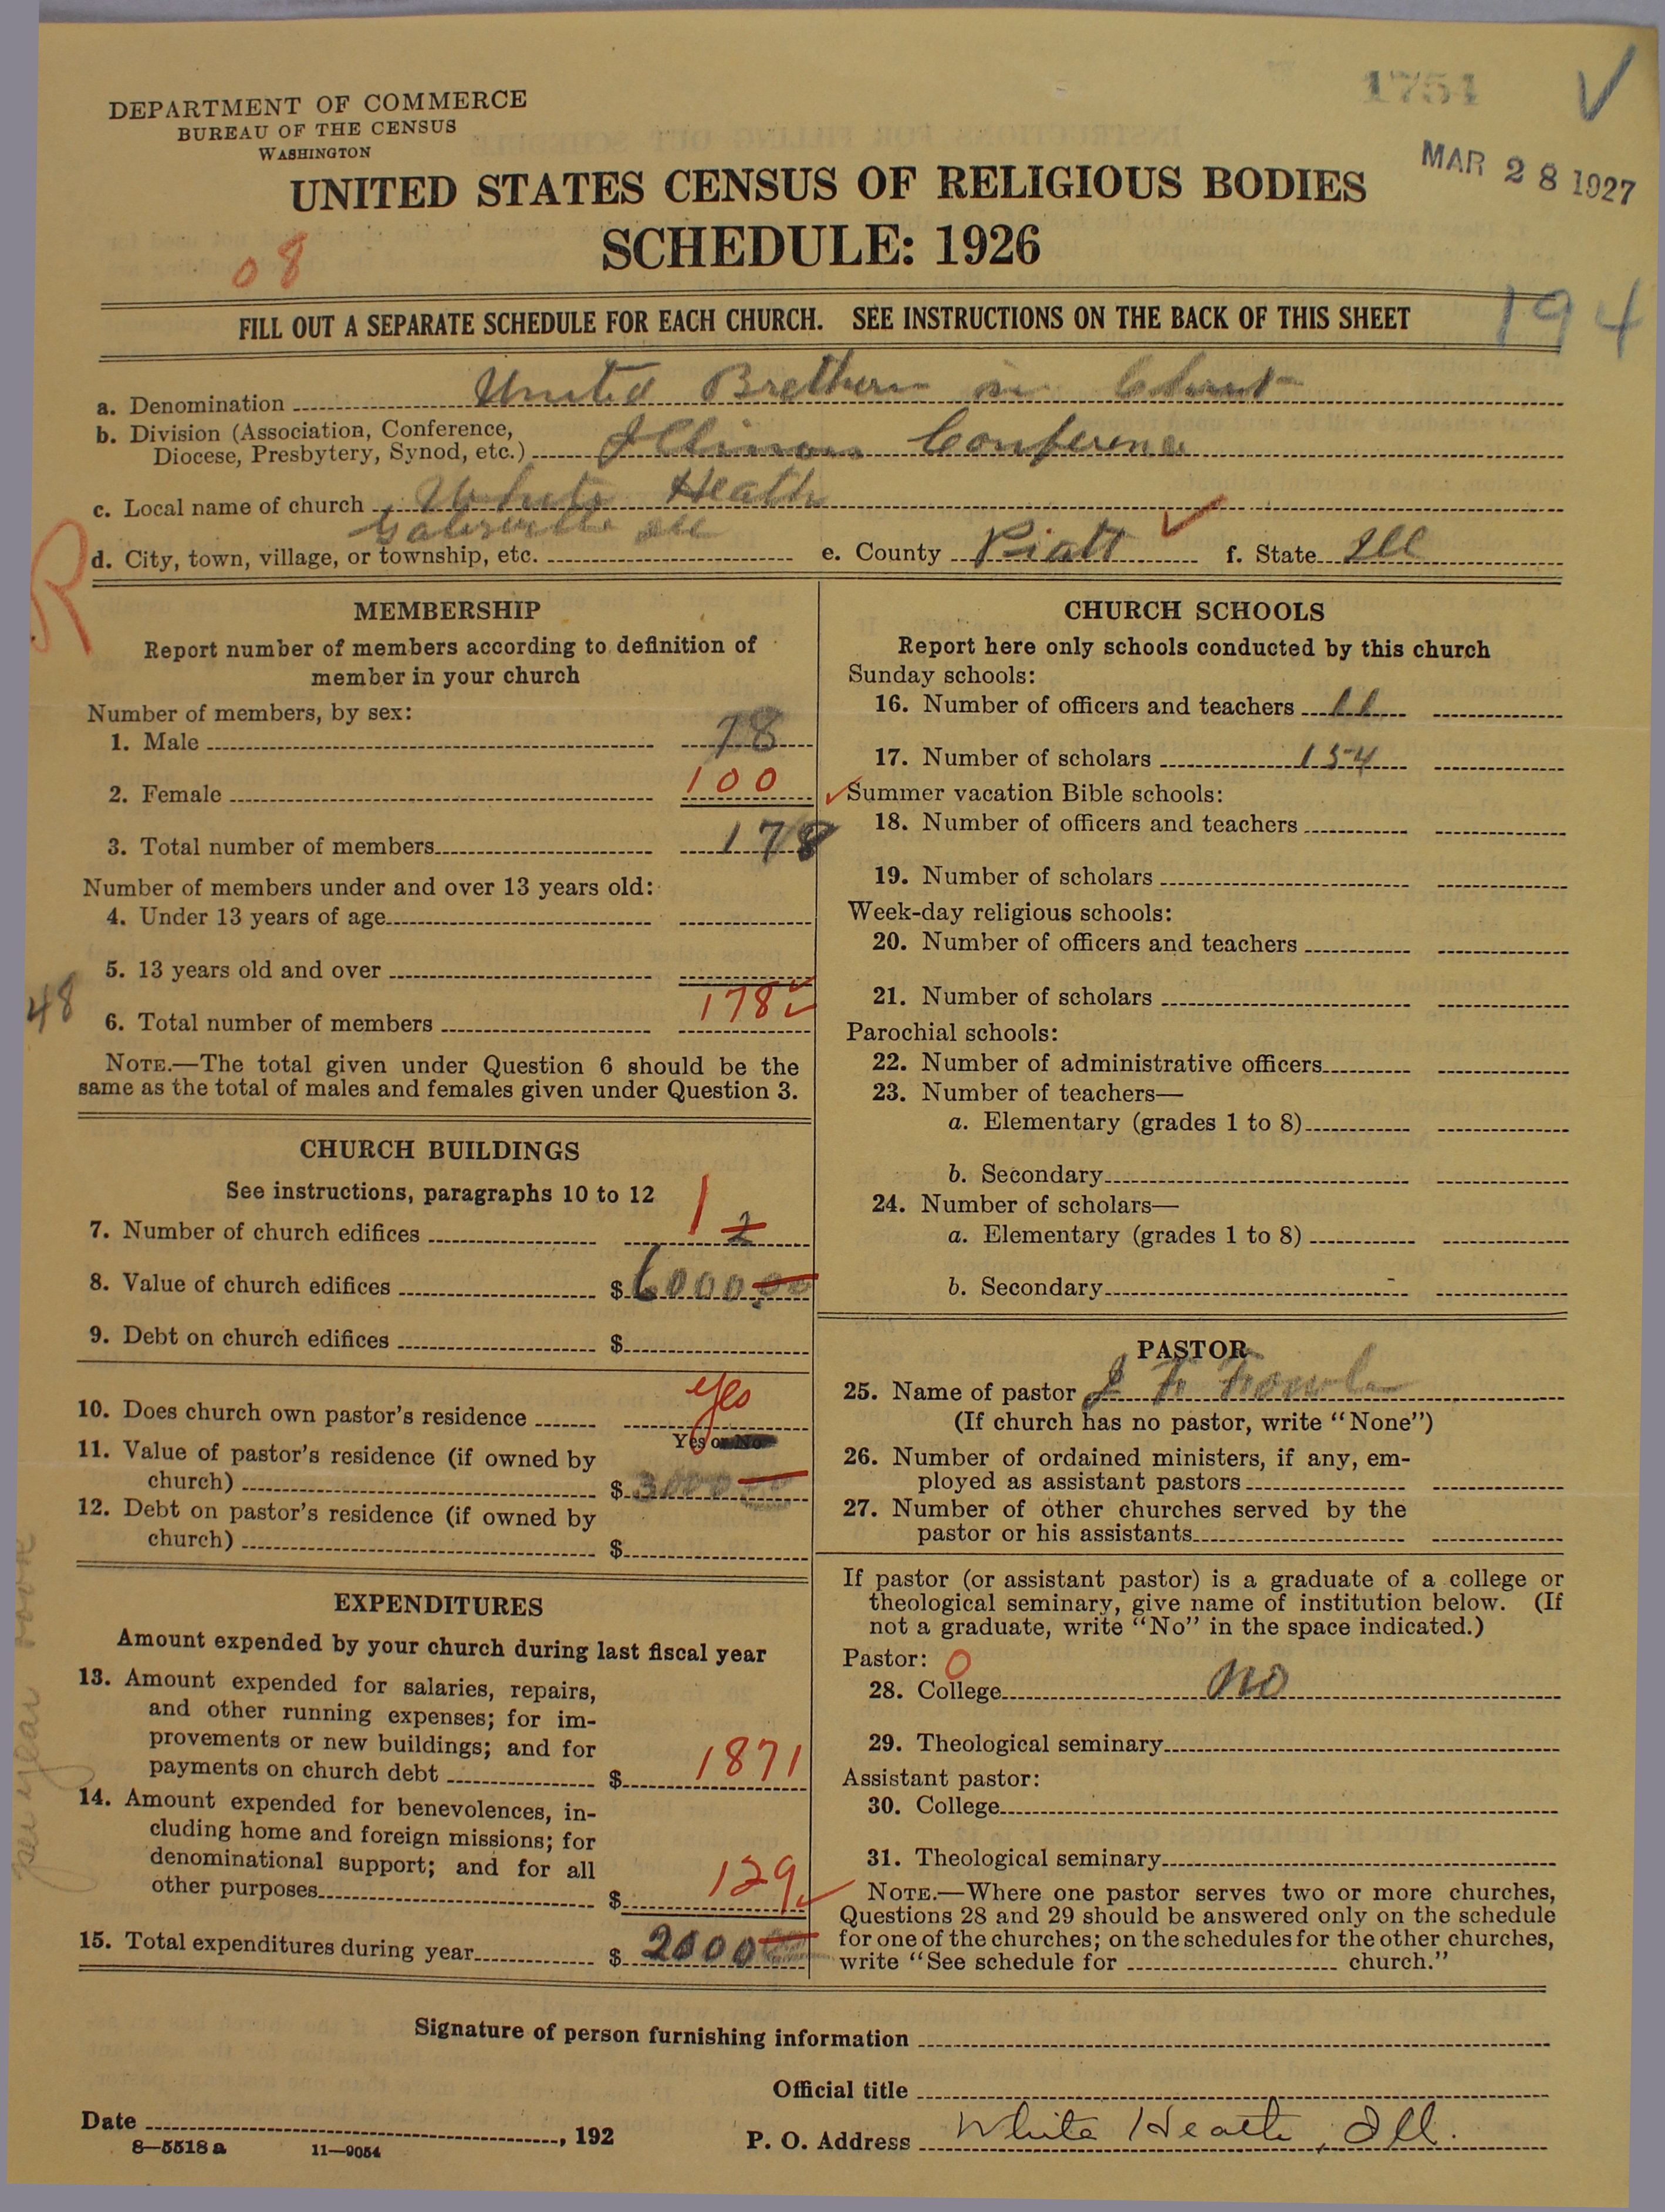 1754
MAR 28 1927
DEPARTMENT OF COMMERCE
BUREAU OF THE CENSUS
WASHINGTON
UNITED STATES CENSUS OF RELIGIOUS BODIES
SCHEDULE: 1926
08
FILL OUT A SEPARATE SCHEDULE FOR EACH CHURCH. SEE INSTRUCTIONS ON THE BACK OF THIS SHEET
194
a. Denomination United Brethern in Christ
b. Division (Association, Conference,
Diocese, Presbytery, Synod, etc.) Illinois Conference
c. Local name of church White Heath
d. City, town, village, or township, etc. Ill e. County Piatt f. State Ill
R
MEMBERSHIP
Report number of members according to definition of
member in your church
Number of members, by sex:
1. Male 78
2. Female 100
3. Total number of members 178
Number of members under and over 13 years old:
4. Under 13 years of age
5. 13 years old and over
48
6. Total number of members 178
NOTE.—The total given under Question 6 should be the
same as the total of males and females given under Question 3.
CHURCH BUILDINGS
See instructions, paragraphs 10 to 12
7. Number of church edifices 1 2
8. Value of church edifices $ 6000.00
9. Debt on church edifices $
10. Does church own pastor's residence yes
Yes or No
11. Value of pastor's residence (if owned by
church) $ 3000.00
12. Debt on pastor's residence (if owned by
church) $
EXPENDITURES
Amount expended by your church during last fiscal year
13. Amount expended for salaries, repairs,
and other running expenses; for im-
provements or new buildings; and for
payments on church debt $ 1871
14. Amount expended for benevolences, in-
cluding home and foreign missions; for
denominational support; and for all
other purposes $ 129
15. Total expenditures during year $ 2000
per year
CHURCH SCHOOLS
Report here only schools conducted by this church
Sunday schools:
16. Number of officers and teachers 11
17. Number of scholars 154
Summer vacation Bible schools:
18. Number of officers and teachers
19. Number of scholars
Week-day religious schools:
20. Number of officers and teachers
21. Number of scholars
Parochial schools:
22. Number of administrative officers
23. Number of teachers—
a. Elementary (grades 1 to 8)
b. Secondary
24. Number of scholars—
a. Elementary (grades 1 to 8)
b. Secondary
PASTOR
25. Name of pastor J
(If church has no pastor, write "None")
26. Number of ordained ministers, if any, em-
ployed as assistant pastors
27. Number of other churches served by the
pastor or his assistants
If pastor (or assistant pastor) is a graduate of a college or
theological seminary, give name of institution below. (If
not a graduate, write "No" in the space indicated.)
Pastor: 0
28. College no
29. Theological seminary
Assistant pastor:
30. College
31. Theological seminary
NOTE.—Where one pastor serves two or more churches,
Questions 28 and 29 should be answered only on the schedule
for one of the churches; on the schedules for the other churches,
write "See schedule for church."
Signature of person furnishing information
Official title
Date , 192
P. O. Address White Heath, Ill.
8—5518 a 11—9054